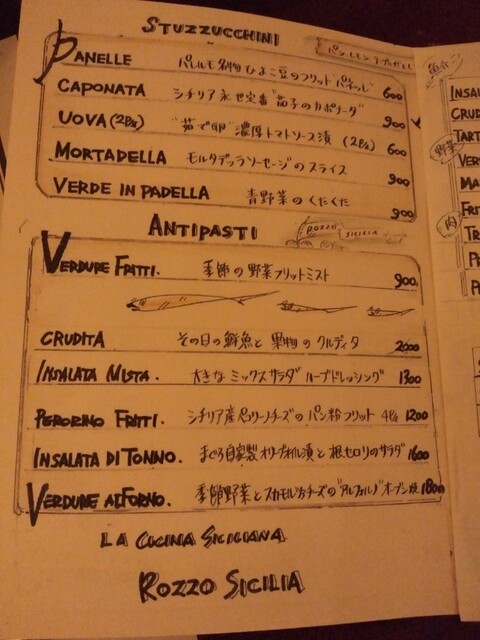 STUZZUCCHINI
PANELLE パレルモ名物ひよこ豆のフリット パネッレ 600
CAPONATA シチリア永世定番"茄子のカポナータ" 900
UOVA (2P4) "茹で卵"濃厚トマトソース漬 (2P4) 600
MORTADELLA モルタデッラソーセージのスライス 900
VERDE IN PADELLA 青野菜のくたくた 900
ANTIPASTI
ROZZO SICILIA
VERDURE FRITTI. 季節の野菜フリットミスト 900
CRUDITA その日の鮮魚と果物のクルディタ 2000
INSALATA MISTA. 大きなミックスサラダ ハーブドレッシング 1300
PERORINO FRITTI. シチリア産ペコリーノチーズのパン粉フリット 1200
INSALATA DI TONNO. まぐろ自家製オリーブオイル漬と根セロリのサラダ 1600
VERDURE AL FORNO. 季節野菜とスカモルツァチーズの"アルフォルノ"オーブン焼 1800
LA CUCINA SICILIANA
ROZZO SICILIA
魚介
INSALA
CRUD
TART
野菜
VER
MA
FRI
肉
TR